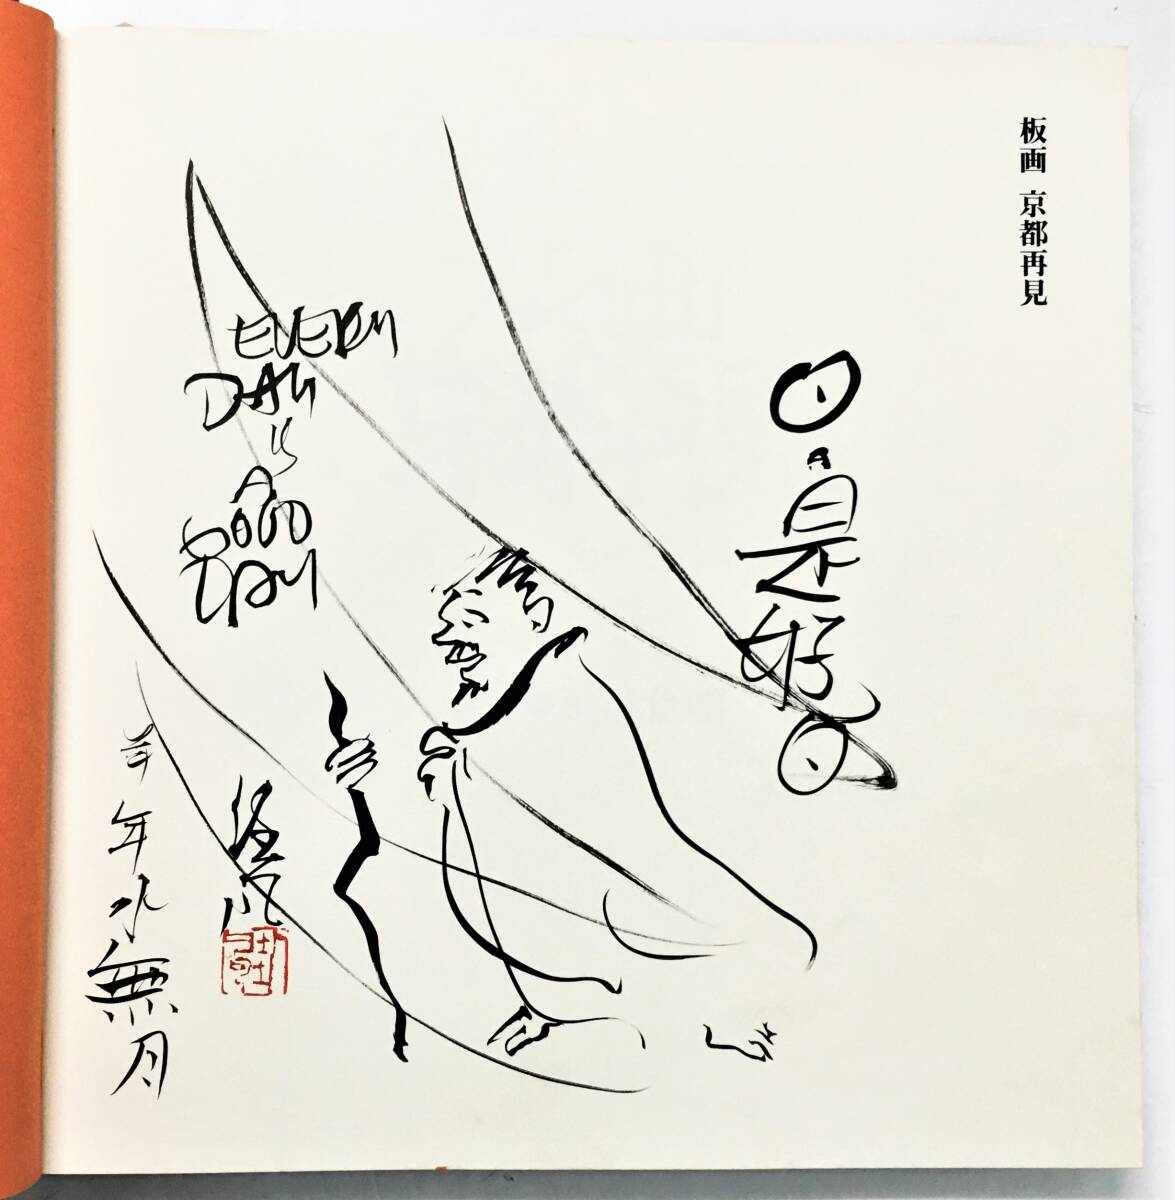 板画 京都再見
日々是好日
EVERY
DAY
IS
A
GOOD
DAY
年水無月